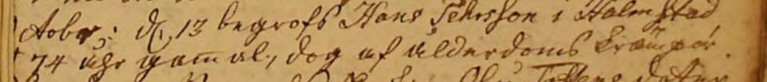 8tober: d. 13 begrofs Hans Pehrsson i Halmstad
74 åhr gam̄al, dog af ålderdoms kräm̄por.